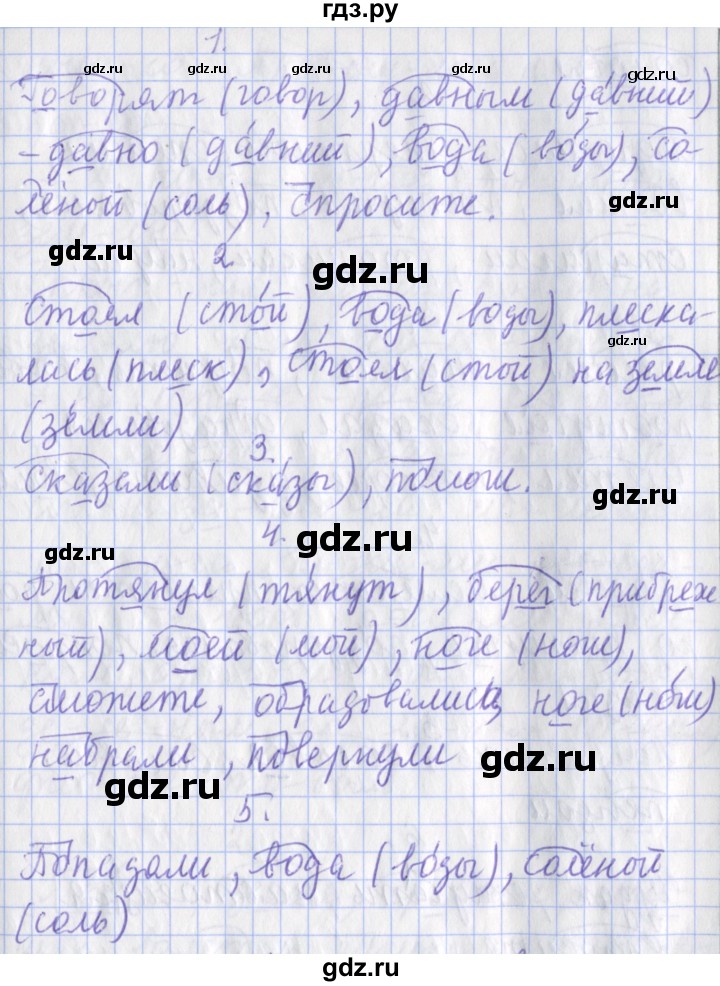 гдз.ру
1.
gdz.ru gdz.ru gdz.ru gdz.ru
Говорят (говор), давным (давний)
- давно (давний), вода (воды), со-
лёной (соль), спросите.
gdz.ru
gdz.ru
2
gdz.ru
Стоял (стой), вода (воды), плеска-
gdz.ru
лась (плеск), стоял (стой) на земле
(земли)
3.
Сказали (сказы), помоги.
gdz.ru
gdz.ru
4.
gdz.ru
Протянул (тянут), берег (прибреж
ный), моей (мой), ноге (ног),
сможете, образовались, ноге (ног)
набрали, повернули
gdz.ru
gdz.ru
5.
Попадали, вода (воды), солёной
(соль)
gdz.ru